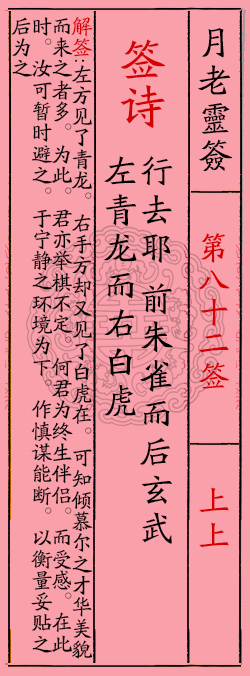 月老靈簽
第八十二签
上上
签诗
行去耶 前朱雀而后玄武
左青龙而右白虎
解签:左方见了青龙。 右手方却又见了白虎在。 可知倾慕尔之才华美貌
而来之者多。 为此。 君亦举棋不定。 何君为终生伴侣。 而受感。 在此
时。 汝可暂时避之。 于宁静之环境为下。 作慎谋能断。 以衡量妥贴之
后为之